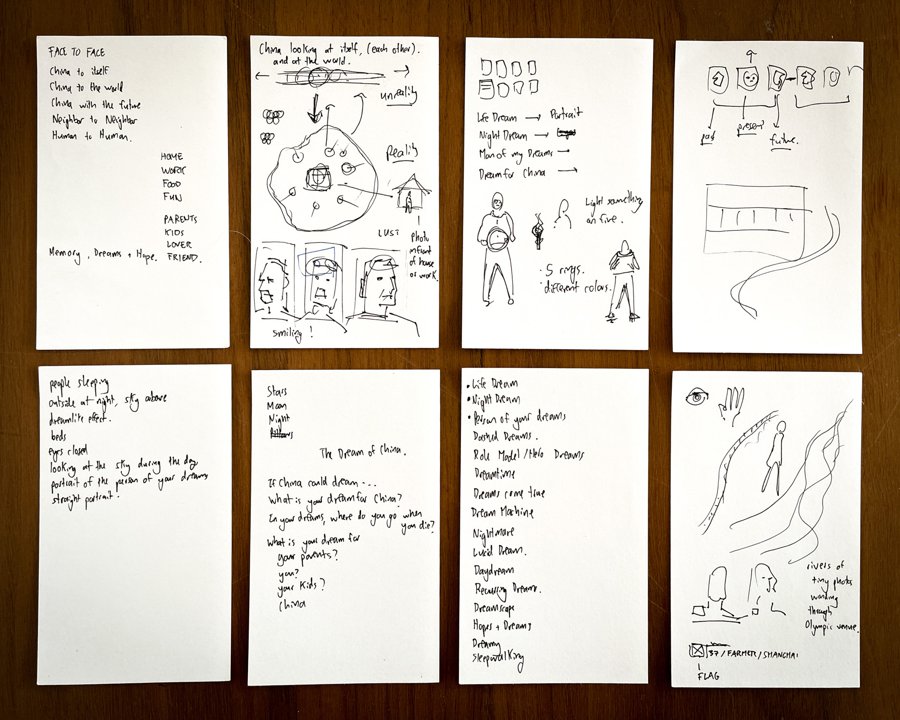 FACE TO FACE
China to itself
China to the world
China with the future
Neighbor to Neighbor
Human to Human.
HOME
WORK
FOOD
FUN
PARENTS
KIDS
LOVER
Memory, Dreams + Hope. FRIEND.
China looking at itself, (each other).
and at the world.
unreality
Reality
LUST
photo
infront
of house
or work.
smiling!
Life Dream → Portrait
Night Dream →
Man of my Dreams →
Dream for China →
Light something
on fire.
· 5 rings.
· different colors.
past
present
future.
people sleeping
outside at night, sky above
dreamlike effect.
beds
eyes closed
looking at the sky during the day
portrait of the person of your dreams
straight portrait.
Stars
Moon
Night
The Dream of China.
If China could dream ...
What is your dream for China?
In your dreams, where do you go when
you die?
What is your dream for
your parents?
you?
your kids?
China
• Life Dream
• Night Dream
• Person of your dreams
Dashed Dreams.
Role Model/Hero Dreams
Dreamtime
Dreams come true
Dream Machine
Nightmare
Lucid Dream.
Daydream
Recurring Dreams.
Dreamscape
Hopes + Dreams
Dreamy
Sleepwalking
rivers of
tiny photos
winding
through
Olympic venue.
37/FARMER/SHANGHAI
FLAG